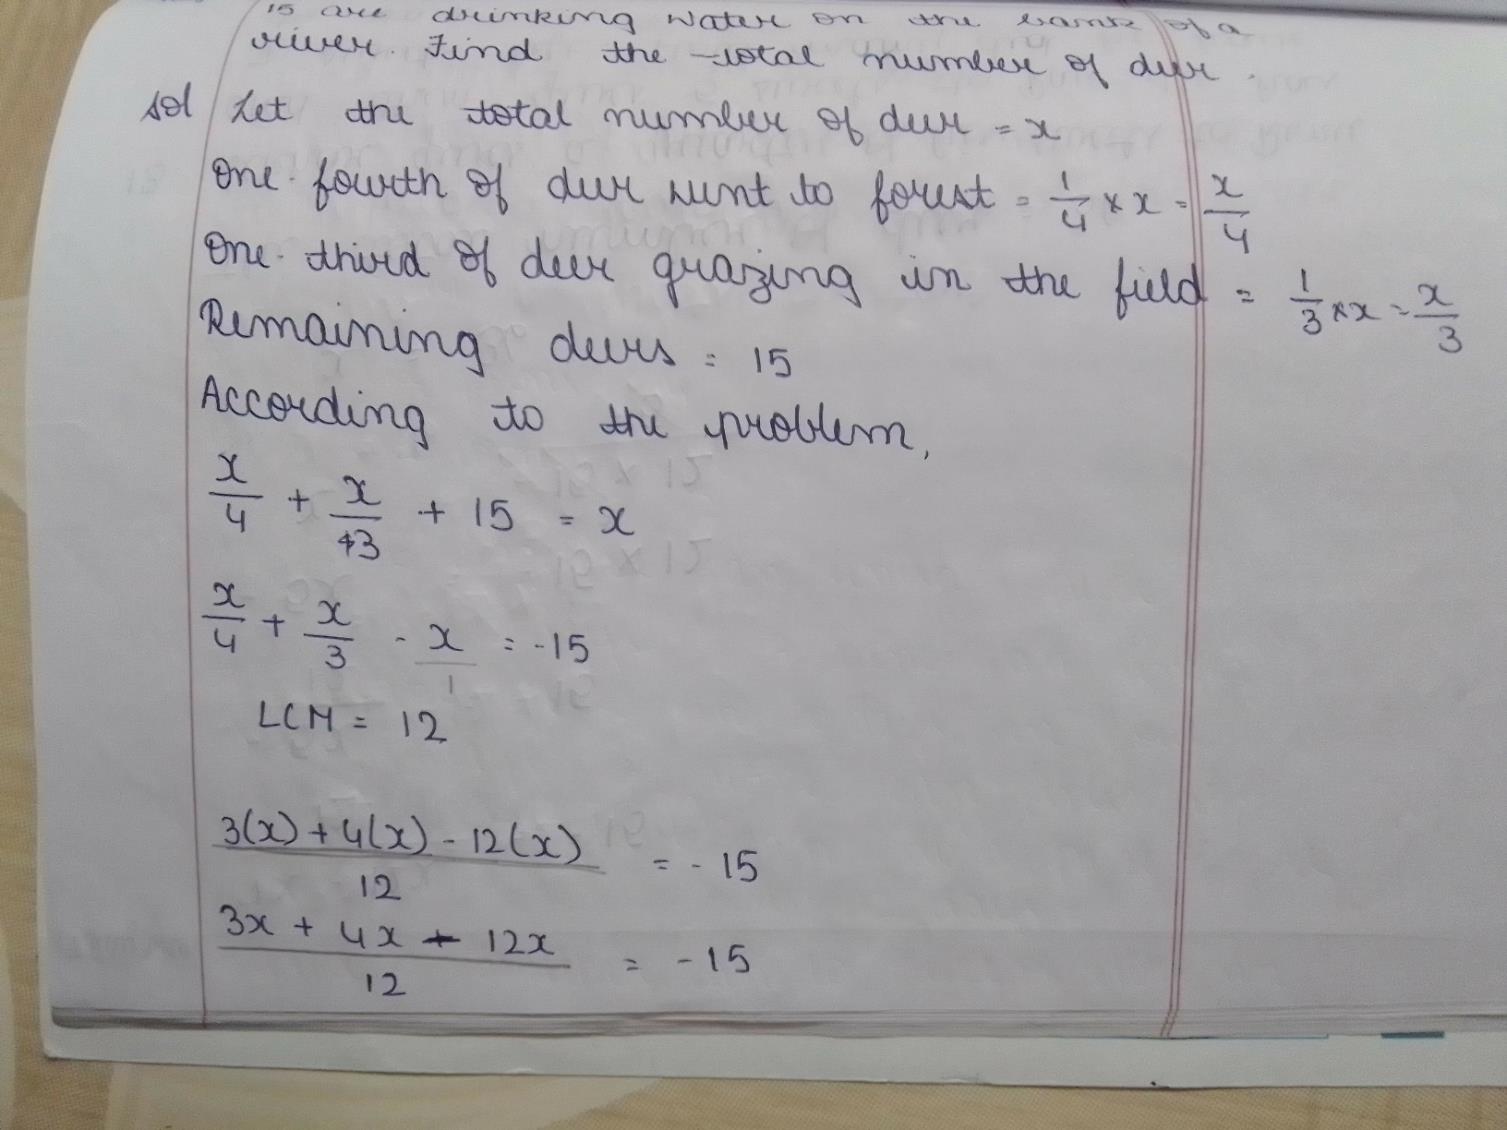 15 are drinking water on the bank of a
river. Find the total number of deer.
Sol Let the total number of deer = x
One-fourth of deer went to forest = 1/4 × x = x/4
One-third of deer grazing in the field = 1/3 × x = x/3
Remaining deers = 15
According to the problem,
x/4 + x/3 + 15 = x
x/4 + x/3 - x/1 = -15
LCM = 12
3(x) + 4(x) - 12(x) / 12 = -15
3x + 4x - 12x / 12 = -15